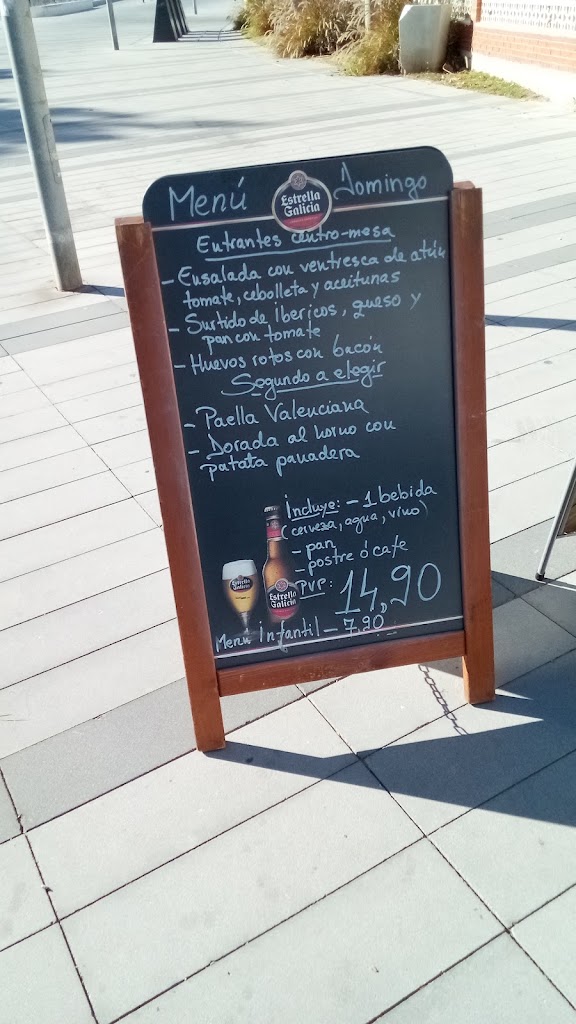 Menú Estrella Galicia Domingo
Entrantes centro-mesa
- Ensalada con ventresca de atún
tomate, cebolleta y aceitunas
- Surtido de ibericos, queso y
pan con tomate
- Huevos rotos con bacón
Segundo a elegir
- Paella Valenciana
- Dorada al horno con
patata panadera
incluye: - 1 bebida
(cerveza, agua, vino)
- pan
- postre ó cafe
PVP: 14,90
Estrella Galicia
Menu infantil - 7,90